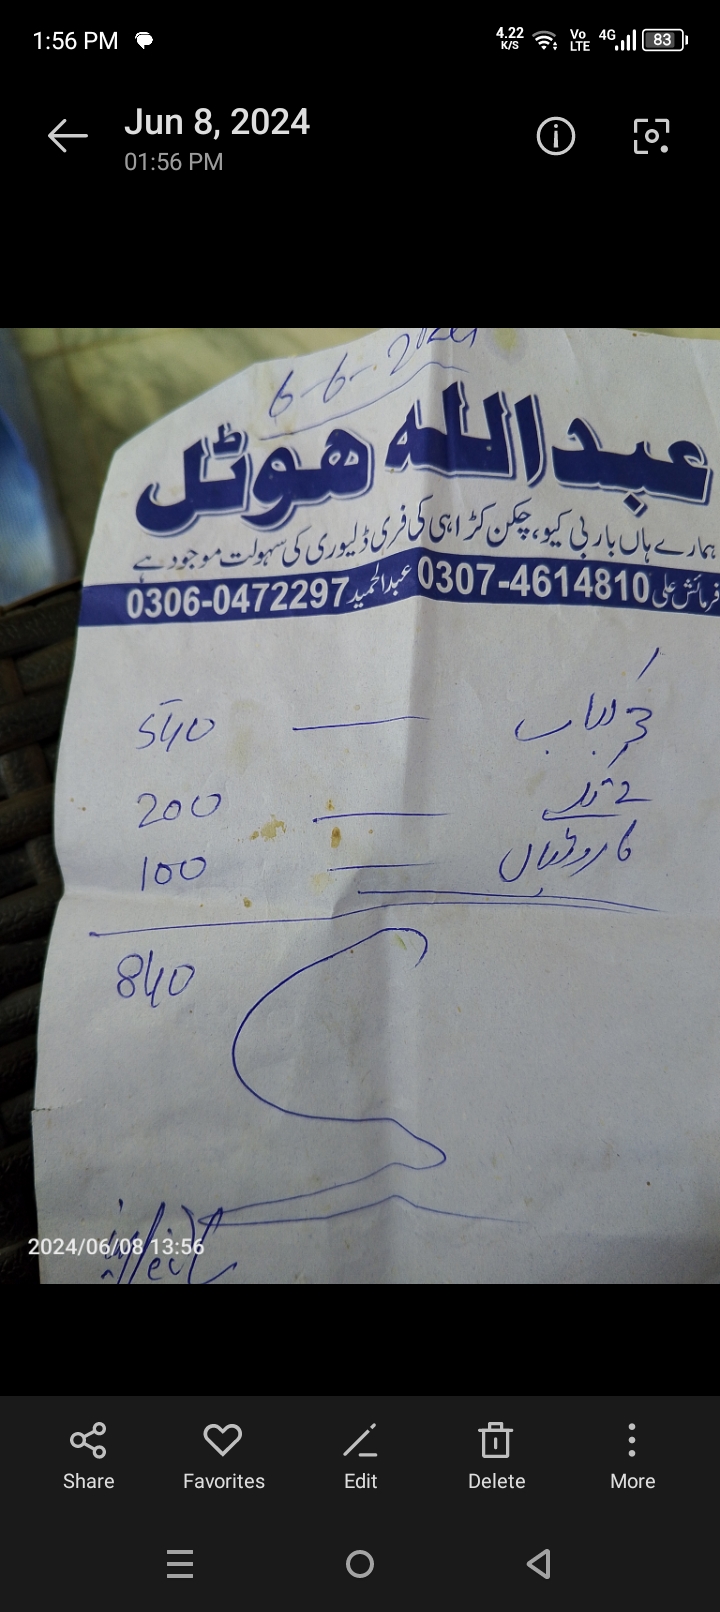 1:56 PM 4.22 K/S Vo LTE 4G 83
Jun 8, 2024
01:56 PM
6-6-2024
عبداللہ ھوٹل
ہمارے ہاں باربی کیو، چکن کڑاہی کی فری ڈلیوری کی سہولت موجود ہے
فرمائش علی 0307-4614810 عبدالحمید 0306-0472297
3 کباب 540
2 200
روٹیاں 100
840
2024/06/08 13:56
Share Favorites Edit Delete More